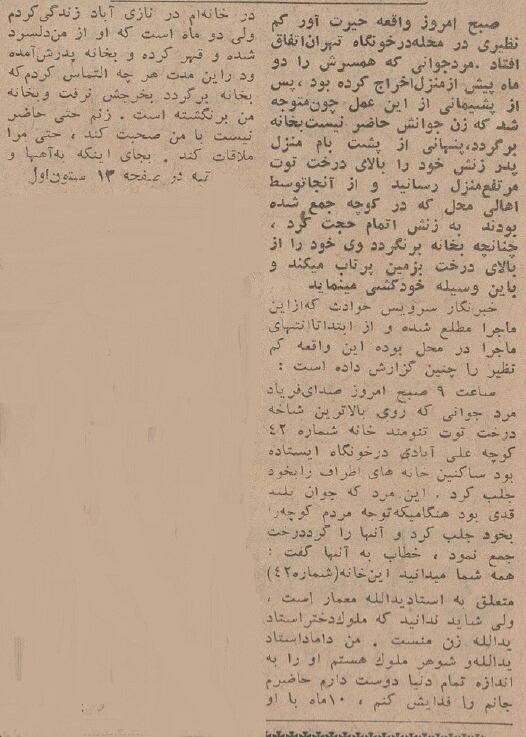 صبح امروز واقعه حیرت آور کم
نظیری در محله درخونگاه تهران اتفاق
افتاد . مرد جوانی که همسرش را دو
ماه پیش از منزل اخراج کرده بود ، پس
از پشیمانی از این عمل چون متوجه
شد که زن جوانش حاضر نیست بخانه
برگردد، پنهانی از پشت بام منزل
پدر زنش خود را بالای درخت توت
مرتفع منزل رسانید و از آنجا توسط
اهالی محل که در کوچه جمع شده
بودند به زنش اتمام حجت کرد ،
چنانچه بخانه برنگردد وی خود را از
بالای درخت بزمین پرتاب میکند و
باین وسیله خودکشی مینماید
خبرنگار سرویس حوادث که از این
ماجرا مطلع شده و از ابتدا تا انتهای
ماجرا در محل بوده این واقعه کم
نظیر را چنین گزارش داده است :
ساعت ۹ صبح امروز صدای فریاد
مرد جوانی که روی بالاترین شاخه
درخت توت تنومند خانه شماره ۴۲
کوچه علی آبادی درخونگاه ایستاده
بود ساکنین خانه های اطراف را بخود
جلب کرد . این مرد که جوان بلند
قدی بود هنگامیکه توجه مردم کوچه را
بخود جلب کرد و آنها را گرد درخت
جمع نمود ، خطاب به آنها گفت :
همه شما میدانید این خانه (شماره ۴۲)
متعلق به استاد یدالله معمار است ،
ولی شاید ندانید که ملوک دختر استاد
یدالله زن منست . من داماد استاد
یدالله و شوهر ملوک هستم او را به
اندازه تمام دنیا دوست دارم حاضرم
جانم را فدایش کنم ، ۱۰ ماه با او
در خانه‌ام در نازی آباد زندگی کردم
ولی دو ماه است که او از من دلسرد
شده و قهر کرده و بخانه پدرش آمده
ود راین مدت هر چه التماس کردم که
بخانه برگردد بخرجش نرفت و بخانه
من برنگشته است . زنم حتی حاضر
نیست با من صحبت کند ، حتی مرا
ملاقات کند . بجای اینکه به آهها و
بقیه در صفحه ۱۳ ستون اول